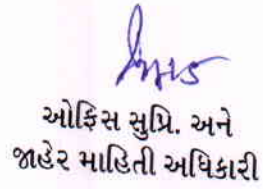 ઓફિસ સુપ્રિ. અને
જાહેર માહિતી અધિકારી